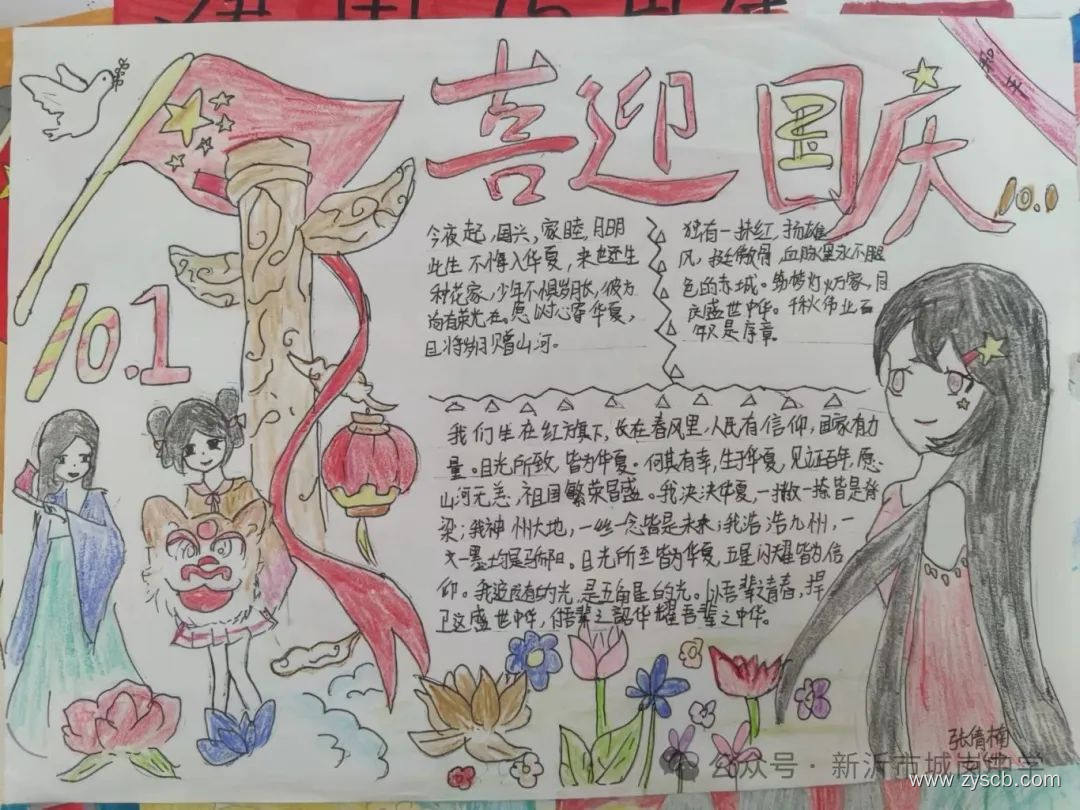 喜迎国庆
10.1
10.1
今夜起,国兴,家睦,月明
此生不悔入华夏,来世还生
种花家,少年不惧岁月长,彼方
尚有荣光在。愿以寸心寄华夏,
且将岁月赠山河。
独有一抹红,扬雄
风,挺傲骨,血脉里永不服
色的赤城。灯火万家,目
庆盛世中华。千秋伟业百
年又是序章。
我们生在红旗下,长在春风里,人民有信仰,国家有力
量。目光所致,皆为华夏。何其有幸,生于华夏,见证百年,愿
山河无恙,祖国繁荣昌盛。我泱泱华夏,一撇一捺皆是脊
梁;我神州大地,一丝一念皆是未来;我浩浩九州,一
文一墨均是骄阳。目光所至皆为华夏,五星闪耀皆为信
仰。我追的光,是五角星的光。以吾辈之青春,捍
卫这盛世中华,使吾辈之韶华耀吾辈之中华。
张倩楠
公众号·新沂市城南中学
www.zyscb.com